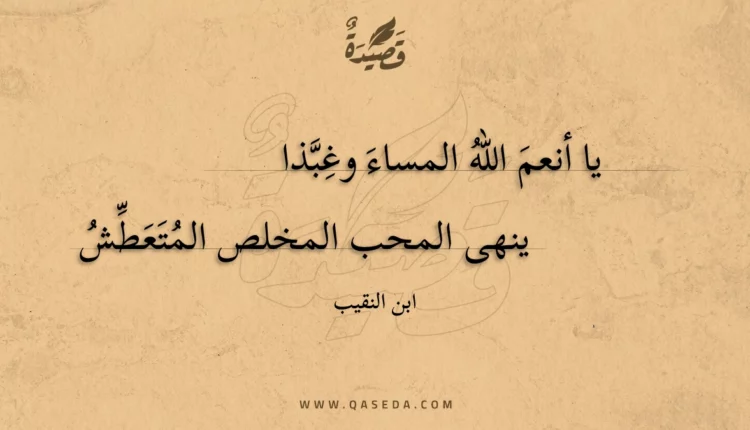 قَصِيْدَةٌ
يا أنعمَ اللهُ المساءَ وغِبَّذا
ينهى المحب المخلص المُتَعَطِّشُ
ابن النقيب
WWW.QASEDA.COM